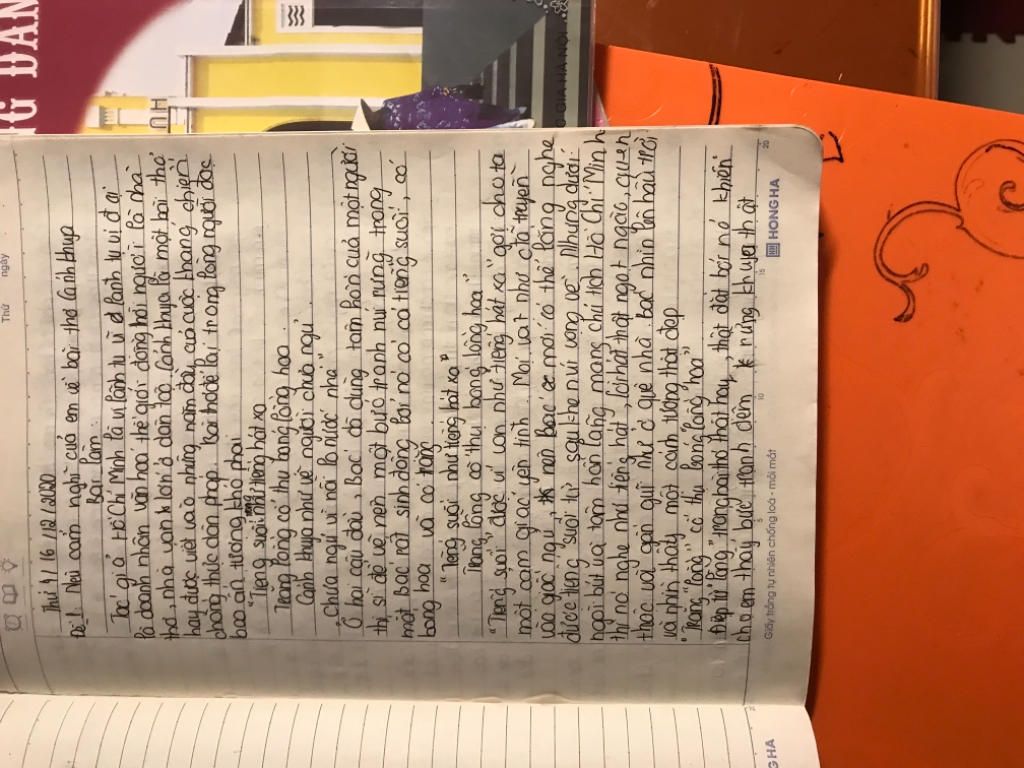 Thứ ngày
Thứ 4 / 16 / 12 / 2020
Đề 1: Nêu cảm nghĩ của em về bài thơ Cảnh khuya
Bài làm:
Tác giả Hồ Chí Minh là vị lãnh tụ vĩ đại
là doanh nhân văn hoá thế giới đồng hời người là nhà
thơ, nhà văn lớn ở dân tộc. Cảnh khuya là một bài thơ
hay được viết vào những năm đầy của cuộc kháng chiến
chống thực dân pháp. Bài
bao ấn tượng khó phai
"Tiếng suối như tiếng hát xa
Trăng lồng cổ thụ bóng lồng hoa.
Cảnh khuya như vẽ người chưa ngủ
Chưa ngủ vì nỗi lo nước nhà"
Ở hai câu đầu, Bác đã dùng tâm hồn của một người
thi sĩ để vẽ nên một bức tranh núi rừng trong
mắt bác rất sinh động bởi nó có cả tiếng suối, có
bóng hoa và có trăng
"Tiếng suối như tiếng hát xa
Trăng lồng cổ thụ bóng lồng hoa"
"Tiếng suối" được ví von như "tiếng hát xa" gợi cho ta
một cảm giác yên tĩnh. Mọi vật như đã truyền
vào giấc ngủ, nên Bác mới có thể lắng nghe
được tiếng suối từ sau khe núi vọng về. Nhưng dưới
ngòi bút và tâm hồn lãng mạng chủ tịch Hồ Chí Minh
thì nó nghe như tiếng hát, lời hát thật ngọt ngào, quen
thộc và gần gũi như ở quê nhà. Bác nhìn lên bầu trời
và nhìn thấy một cảnh tượng thật đẹp
"Trăng" lồng" cổ thụ bóng "lồng hoa"
điệp từ "lồng" trong bài thơ thật hay, thật đặt bởi nó khiến
cho em thấy bức tranh đêm rừng khuya thật
Giấy trắng tự nhiên chống loá - mỏi mắt
5 10 15 20
HONG HA
GIA HÀ NỘI
NG DẪN
G HA